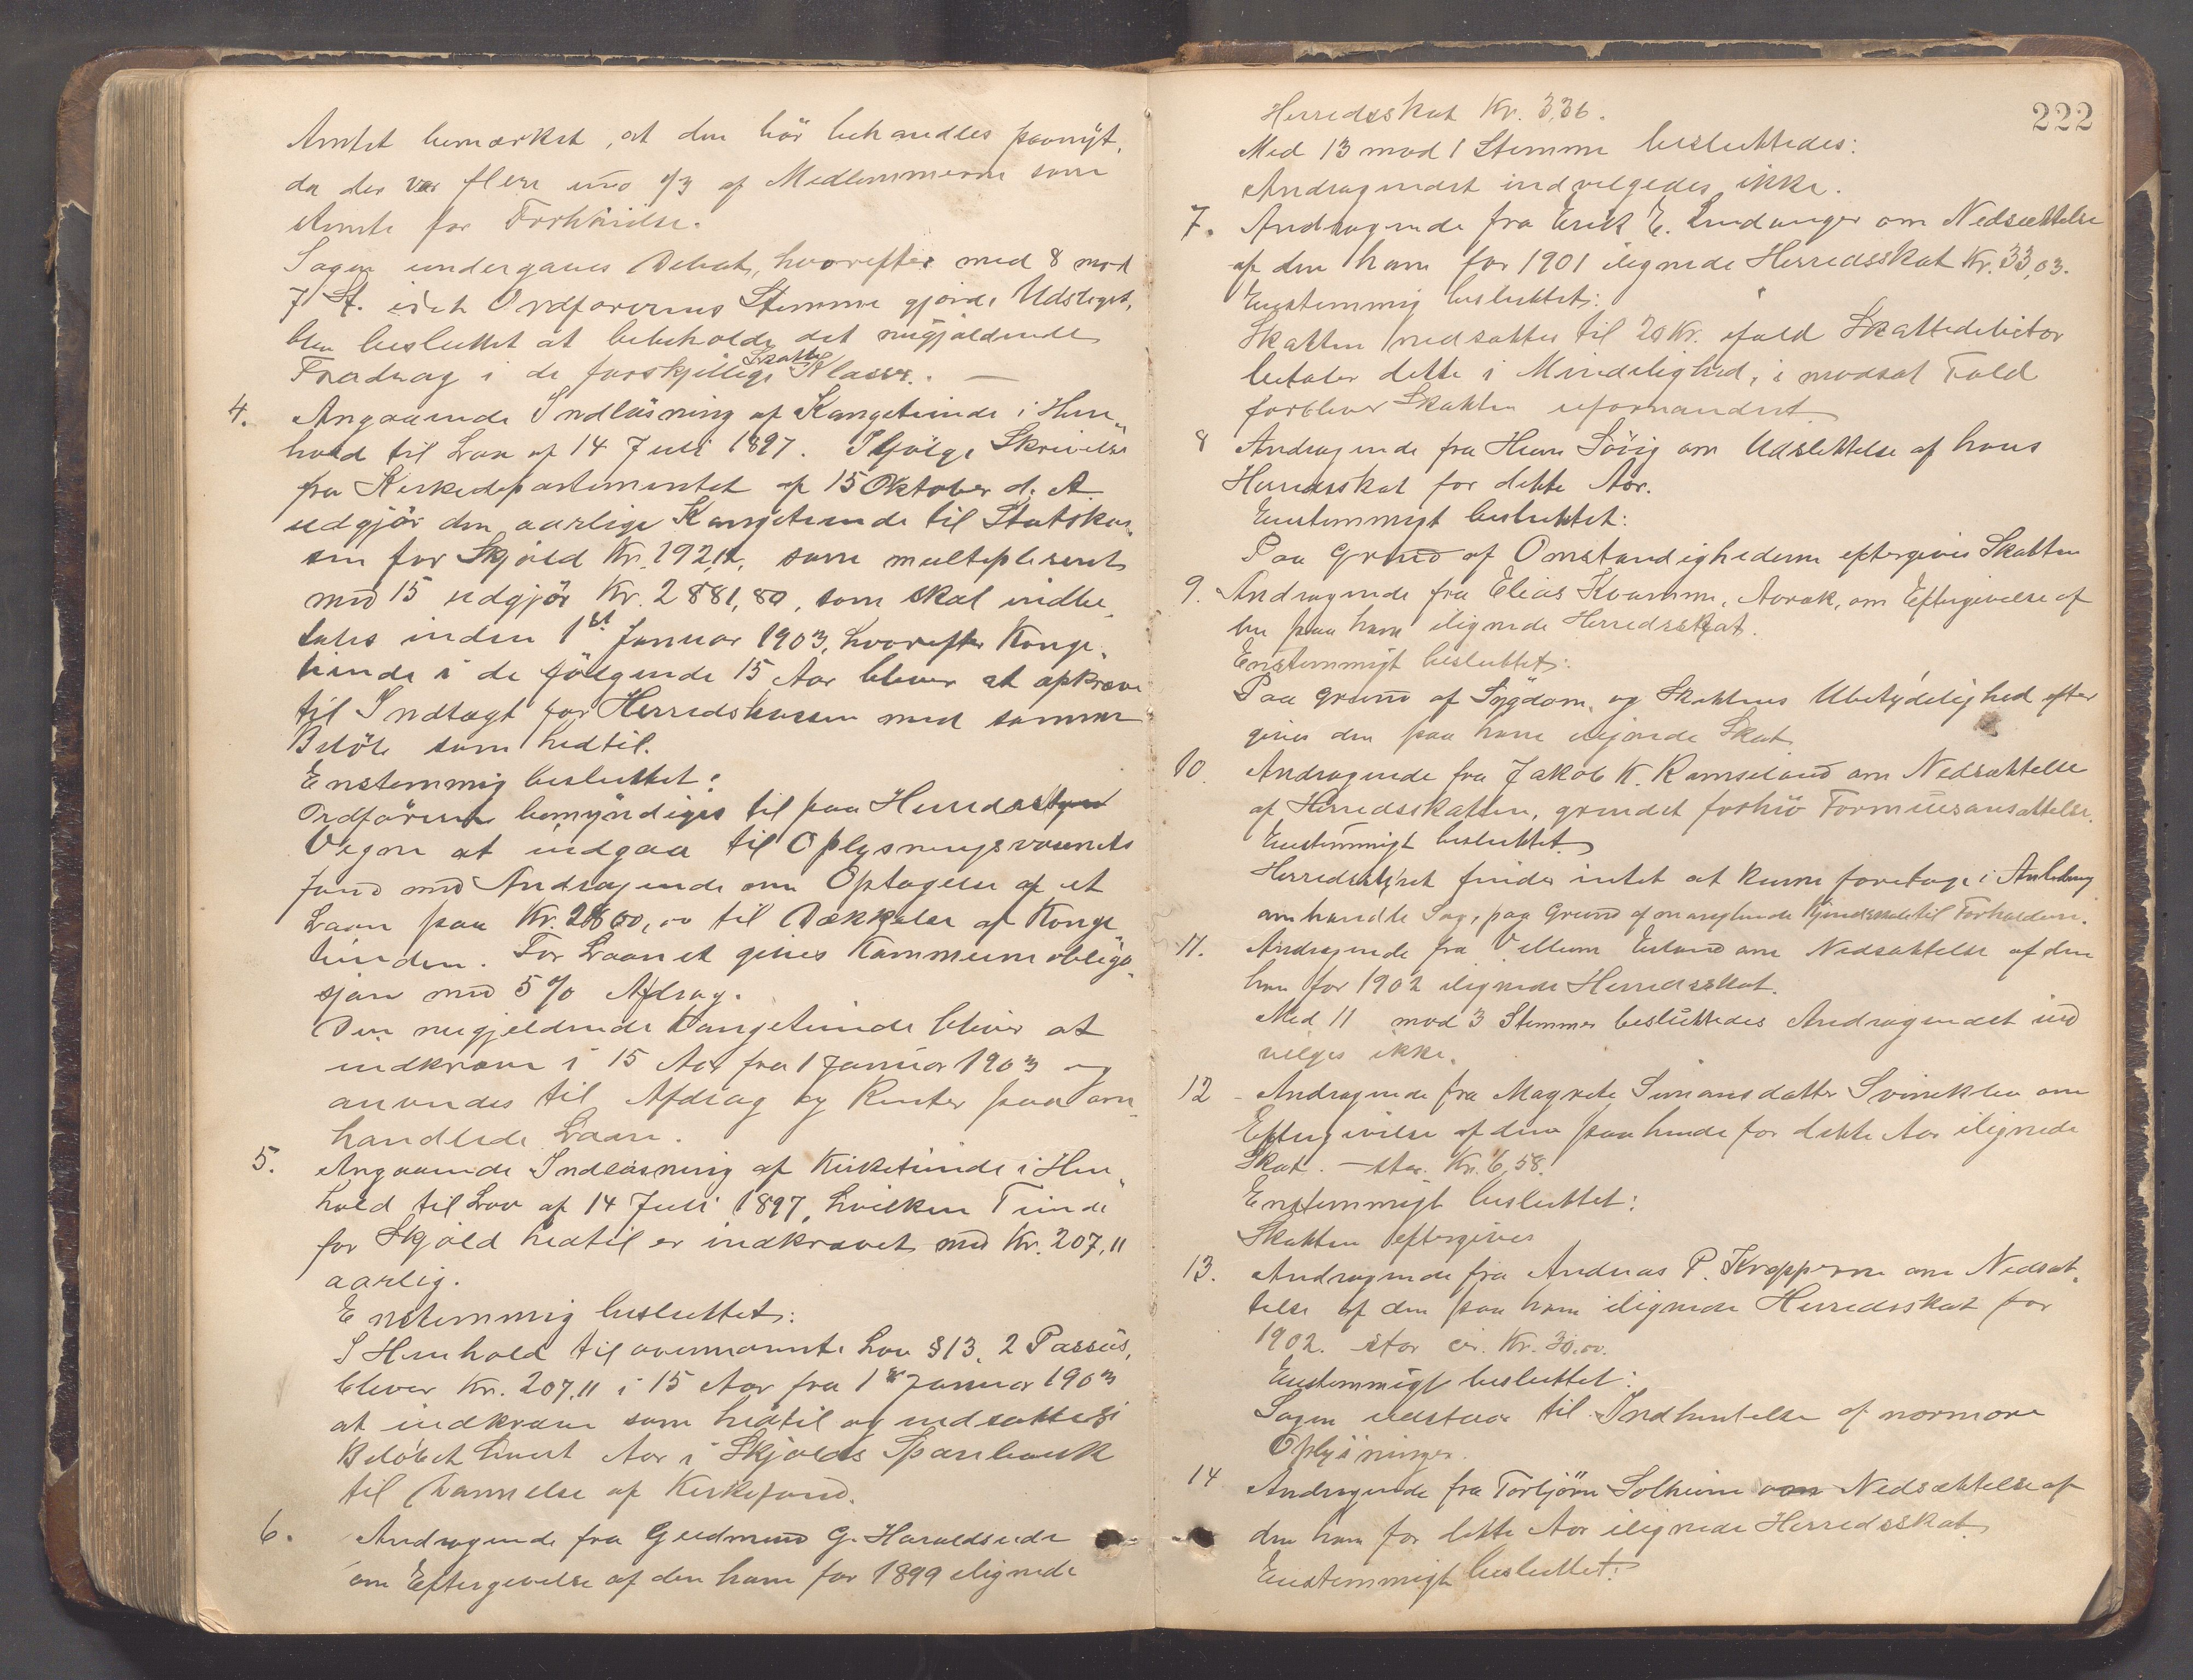 Amtet bemærket, at den bör behandles paanyt,
da der var flere end 1/3 af Medlemmerne som
stemte for Forhöielse.
Sagen undergaves Debat, hvorefter med 8 mod
7 St. idet Ordförerens Stemme gjorde Udslaget,
blev besluttet at bibeholde det nugjældende
Fradrag i de forskjellige Skatte Klasser. —
4. Angaaende Indlösning af Kongetiende i Hen„
hold til Lov af 14 Juli 1897. Ifølge Skrivelse
fra Kirkedepartementet af 15 Oktober d. A.
udgjör den aarlige Kongetiende til Statskas„
sen for Skjold Kr. 192,12, som multipliseret
med 15 udgjör Kr. 2881,80, som skal indbe„
tales inden 1st Januar 1903, hvorefter Konge„
tiende i de fölgende 15 Aar bliver at opkræve
til Indtægt for Herredskassen med samme
Belöb som hidtil.
Enstemmig besluttet:
Ordföreren bemyndiges til paa Herredsstyrets
Vegne at indgaa til Oplysningsvæsenets
fond med Andragende om Optagelse af et
Laan paa Kr. 2800,00 til Dækkelse af Konge„
tienden. For Laanet gives Kommuneobliga„
sjon med 5% Afdrag.
Den nugjeldende Kongetiende bliver at
indkræve i 15 Aar fra 1 Januar 1903 og
anvendes til Afdrag og Renter paa om„
handlede Laan.
5. Angaaende Indlösning af Kirketiende i Hen„
hold til Lov af 14 Juli 1897, hvilken Tiende
for Skjold hidtil er indkrævet med Kr. 207,11
aarlig.
Enstemmig besluttet:
I Henhold til ovennævnte Lov §13, 2 Passus,
bliver Kr. 207,11 i 15 Aar fra 1ste Januar 1903
at indkræve som hidtil og indsættes
Belöbet hvert Aar i Skjolds Sparebank
til Dannelse af Kirkefond.
6. Andragende fra Gudmund G. Haraldseide
om Eftergivelse af den ham for 1899 ilignede
222
Herredsskat Kr. 3,36.
Med 13 mod 1 Stemme besluttedes:
Andragendet indvilgedes ikke.
7. Andragende fra Erik E. Lindanger om Nedsættelse
af den ham for 1901 ilignede Herredsskat Kr. 33,03.
Enstemmig besluttet:
Skatten nedsættes til 20 Kr. ifald Skattedebitor
betaler dette i Mindelighed, i modsat Fald
forbliver Skatten uforandret
8 Andragende fra Hans Sörig om Udslettelse af hans
Herredsskat for dette Aar.
Enstemmigt besluttet:
Paa Grund af Omstændighederne eftergives Skatten
9. Andragende fra Elias Kvamme, Aavak, om Eftergivelse af
den paa ham ilignede Herredsskat.
Enstemmigt besluttet:
Paa grund af Sygdom, og Skattens Ubetydelighed efter
gives den paa ham ilignede Skat.
10. Andragende fra Jakob K. Ramseland om Nedsættelse
af Herredsskatten, grundet forhöiet Formuesansættelse.
Enstemmigt besluttet
Herredsstyret finder intet at kunne foretage i Anledning
omhandlede Sag, paa Grund af manglende Kjendskab til Forholdene.
11. Andragende fra Villum Eiland om Nedsættelse af den
ham for 1902 ilignede Herredsskat.
Med 11 mod 3 Stemmer besluttedes Andragendet ind
vilges ikke.
12 - Andragende fra Magrete Simonsdatter Svineklev om
Eftergivelse af den paa hende for dette Aar ilignede
Skat. — stor. Kr. 6,58.
Enstemmigt besluttet:
Skatten eftergives
13. Andragende fra Andreas P. Kropperne om Nedsæt„
telse af den paa ham ilignede Herredsskat for
1902. stor cir. Kr. 30,00.
Enstemmigt besluttet:
Sagen udstaar til Indhentelse af nærmere
Oplysninger.
14 Andragende fra Torbjörn Solheim om Nedsættelse af
den ham for dette Aar ilignede Herredsskat
Enstemmigt besluttet: